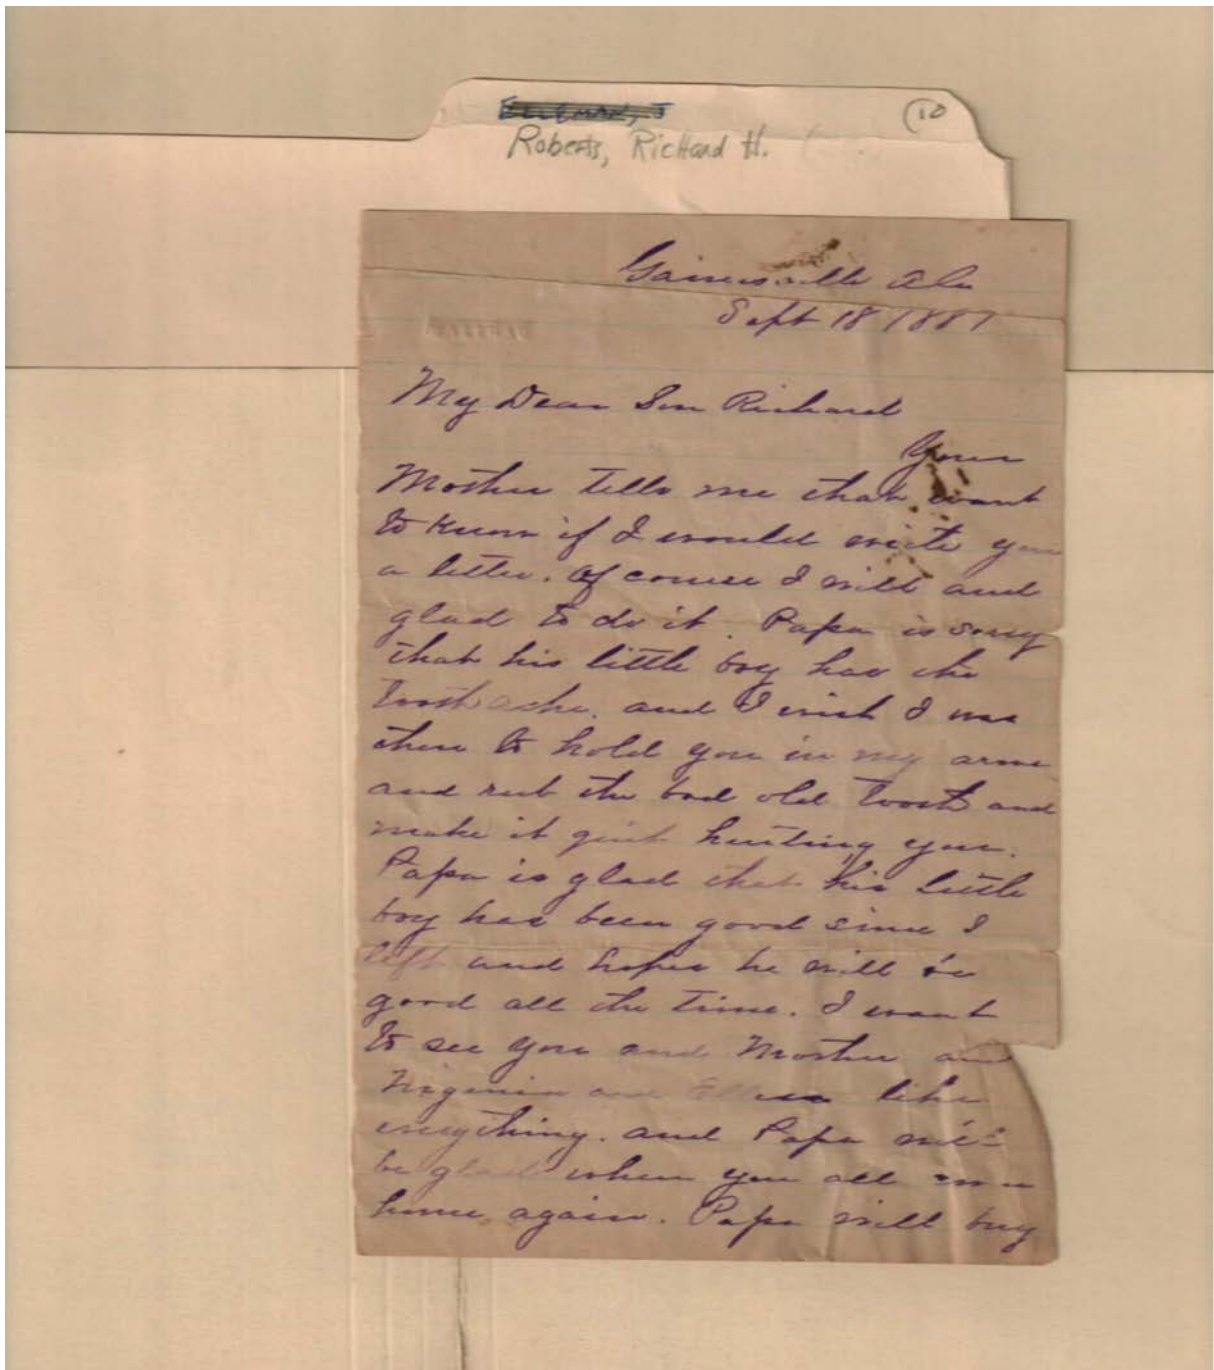 10
Roberts, Richard H.
Gainesville Ala
Sept 18 1887
My Dear Son Richard
Your
Mother tells me that want
to know if I would write you
a letter. Of course I will and
glad to do it. Papa is sorry
that his little boy has the
toothache. and I wish I was
there to hold you in my arms
and rub the bad old tooth and
make it quit hurting you.
Papa is glad that his little
boy has been good since I
left and hopes he will be
good all the time. I want
to see you and Mother and
Virginia and like
everything. and Papa will
be glad when you all
home again. Papa will buy